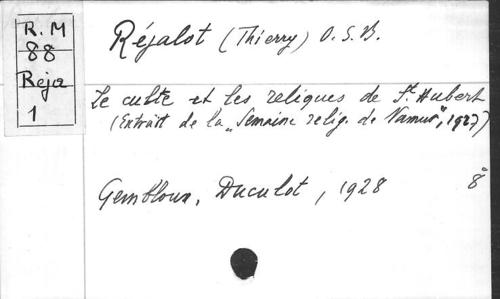 R.M
88
Reja
1
Réjalot (Thierry) O.S.B.
Le culte et les reliques de St Hubert
(Extrait de la „Semaine relig. de Namur", 1927)
Gembloux, Duculot, 1928 8°